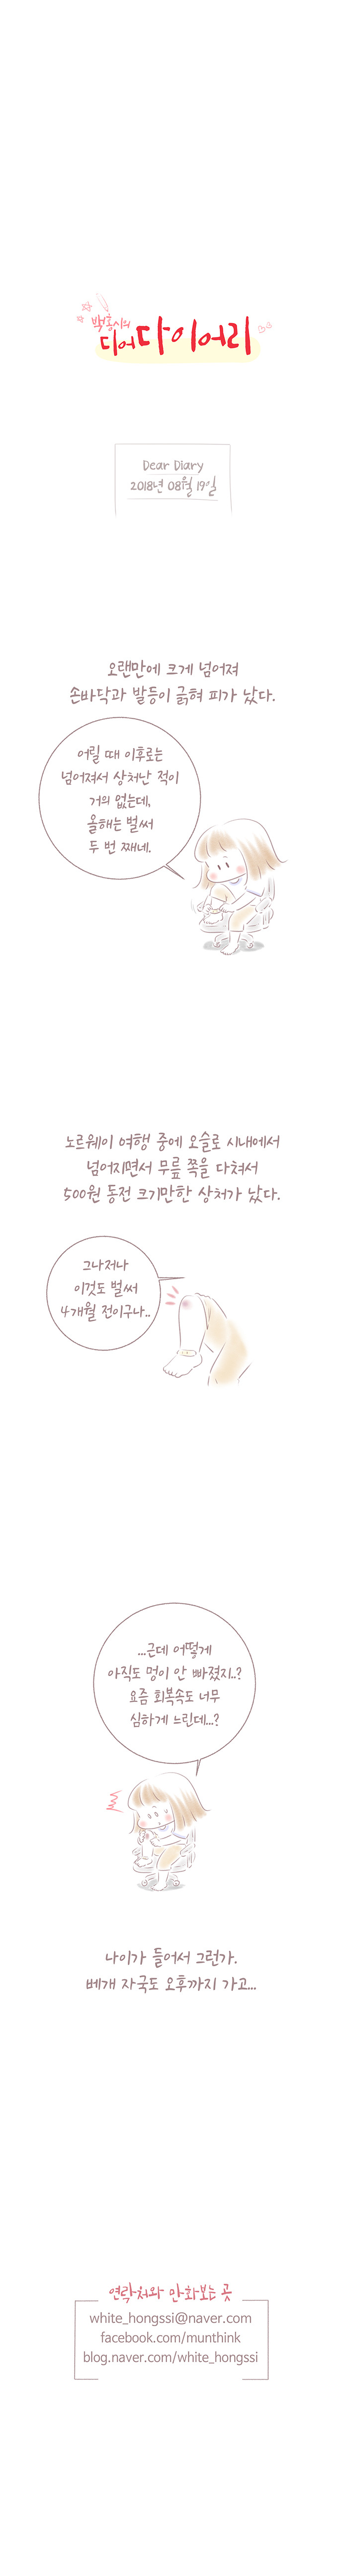 백홍시의
디어 다이어리
Dear Diary
2018년 08월 19일
오랜만에 크게 넘어져
손바닥과 발등이 긁혀 피가 났다.
어릴 때 이후로는
넘어져서 상처난 적이
거의 없는데,
올해는 벌써
두 번 째네.
노르웨이 여행 중에 오슬로 시내에서
넘어지면서 무릎 쪽을 다쳐서
500원 동전 크기만한 상처가 났다.
그나저나
이것도 벌써
4개월 전이구나..
...근데 어떻게
아직도 멍이 안 빠졌지..?
요즘 회복속도 너무
심하게 느린데...?
나이가 들어서 그런가.
베개 자국도 오후까지 가고...
연락처와 만화보는 곳
white_hongssi@naver.com
facebook.com/munthink
blog.naver.com/white_hongssi